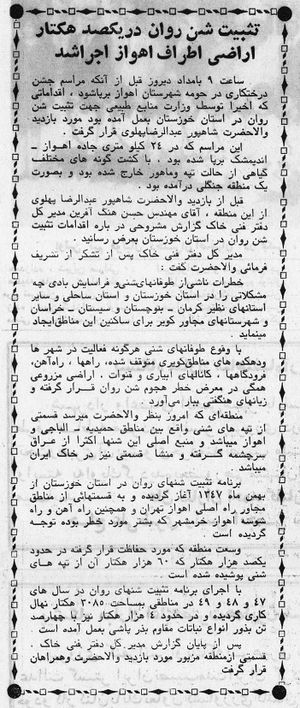 تثبیت شن روان در یکصد هکتار
اراضی اطراف اهواز اجرا شد
ساعت ۹ بامداد دیروز قبل از آنکه مراسم جشن
درختکاری در حومه شهرستان اهواز برپاشود ، اقداماتی
که اخیرا توسط وزارت منابع طبیعی جهت تثبیت شن
روان در استان خوزستان بعمل آمده بود مورد بازدید
والاحضرت شاهپور عبدالرضاپهلوی قرار گرفت .
این مراسم که در ۲۴ کیلو متری جاده اهواز ـ
اندیمشک برپا شده بود ، با کشت گونه های مختلف
گیاهی از حالت تپه وماهور خارج شده بود و بصورت
یک منطقه جنگلی درآمده بود .
قبل از بازدید والاحضرت شاهپور عبدالرضا پهلوی
از این منطقه ، آقای مهندس حسن هنگ آفرین مدیر کل
دفتر فنی خاک گزارش مشروحی در باره اقدامات تثبیت
شن روان در استان خوزستان بعرض رسانید .
مدیر کل دفتر فنی خاک پس از تشکر از تشریف
فرمائی والاحضرت گفت :
خطرات ناشی‌از طوفانهای‌شنی‌و فرسایش بادی چه
مشکلاتی را در استان خوزستان و استان ساحلی و سایر
استانهای نظیر کرمان ـ بلوچستان و سیستان ـ خراسان
و شهرستانهای مجاور کویر برای ساکنین این مناطق‌ایجاد
مینماید .
با وقوع طوفانهای شنی هرگونه فعالیت در شهر ها
ودهکده های مناطق‌کویری متوقف‌شده، راهها ، راه‌آهن،
فرودگاهها ، کانالهای آبیاری و قنوات ، اراضی مزروعی
همگی در معرض خطر هجوم شن روان قرار گرفته و
زیانهای هنگفتی ببار می‌آورد .
منطقه‌ای که امروز بنظر والاحضرت میرسد قسمتی
از تپه های شنی واقع بین مناطق حمیدیه ـ الباجی و
اهواز میباشد و منبع اصلی این شنها اکثرا از عراق
سرچشمه گرفته و منشا قسمتی نیز در خاک ایران
میباشد .
برنامه تثبیت شنهای روان در استان خوزستان از
بهمن ماه ۱۳۴۷ آغاز گردیده و به قسمتهائی از مناطق
مجاور راه اصلی اهواز تهران و همچنین راه آهن و راه
شوسه اهواز خرمشهر که بیشتر مورد خطر بوده توجه
گردیده است
وسعت منطقه که مورد حفاظت قرار گرفته در حدود
یکصد هزار هکتار که ۶۰ هزار هکتار آن از تپه های
شنی پوشیده شده است .
با اجرای برنامه تثبیت شنهای روان در سال های
۴۷ و ۴۸ و ۴۹ در مناطقی بمساحت ۳۰۸۵ هکتار نهال
کاری گردیده و در حدود ۴ هزار هکتار نیز با چهارصد
تن بذور انواع نباتات مقاوم بذر پاشی بعمل آمده است .
پس از پایان گزارش مدیر کل دفتر فنی خاک .
قسمتی ازمنطقه مزبور مورد بازدید والاحضرت وهمراهان
قرار گرفت